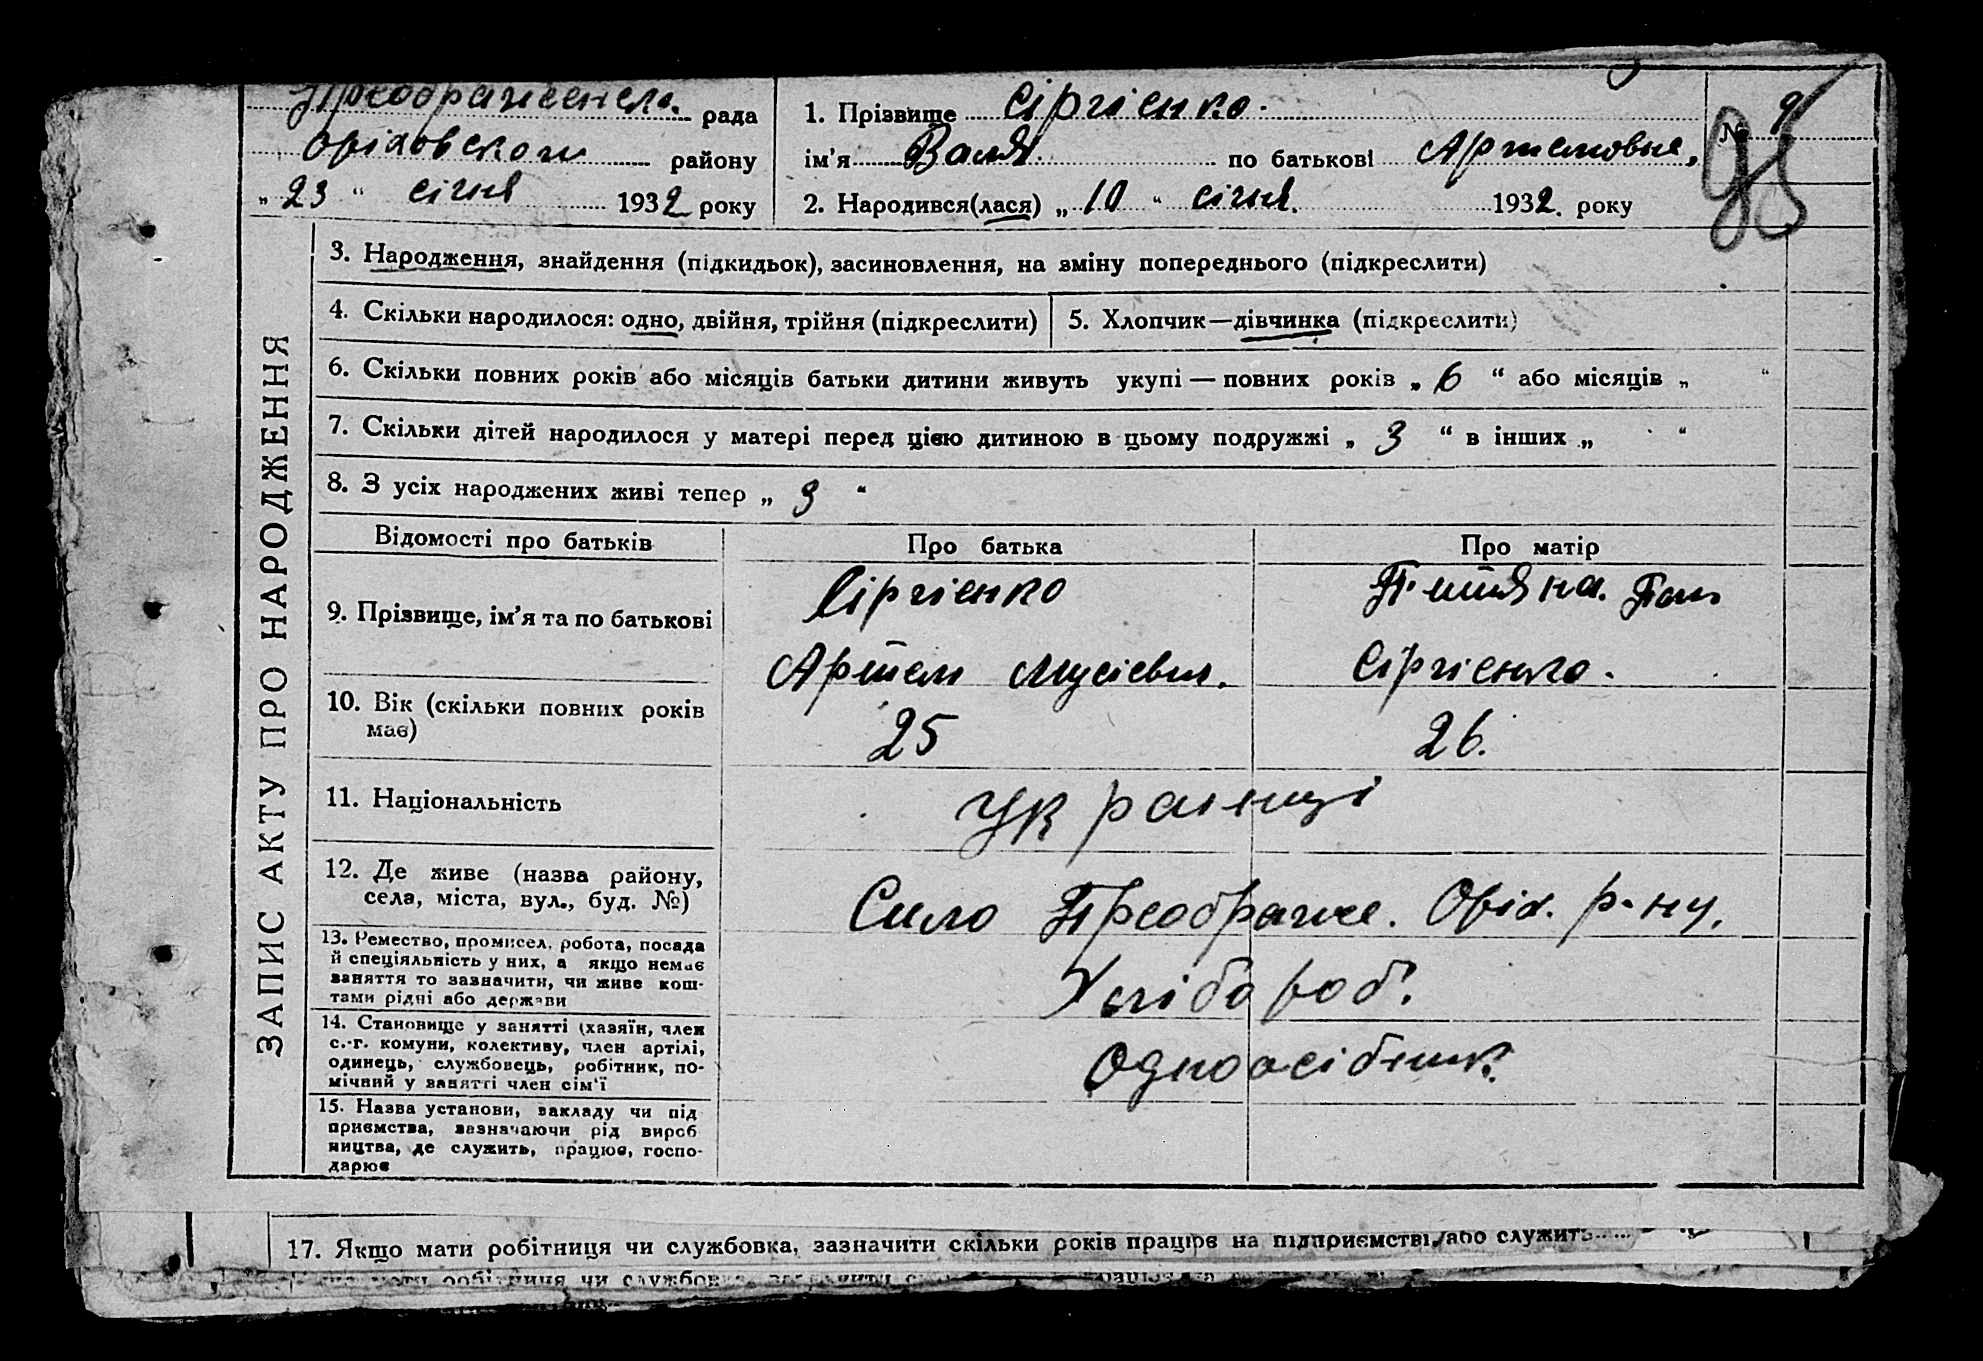 Преображенска рада
Оріховского району
„ 23 “ січня 1932 року
1. Прізвище Сіргієнко.
ім’я Валя по батькові Артемовна.
№ 9
95
2. Народився(лася) „ 10 “ січня. 1932. року
ЗАПИС АКТУ ПРО НАРОДЖЕННЯ
3. Народження, знайдення (підкидьок), засиновлення, на зміну попереднього (підкреслити)
4. Скільки народилося: одно, двійня, трійня (підкреслити)
5. Хлопчик—дівчинка (підкреслити)
6. Скільки повних років або місяців батьки дитини живуть укупі — повних років „ 6 “ або місяців „ “
7. Скільки дітей народилося у матері перед цією дитиною в цьому подружжі „ 3 “ в інших „ “
8. З усіх народжених живі тепер „ 3 “
Відомості про батьків
Про батька
Про матір
9. Прізвище, ім’я та по батькові
Сіргієнко
Артем Мусієвич.
Сіргієнко.
10. Вік (скільки повних років
має)
25
26.
11. Національність
Українці
12. Де живе (назва району,
села, міста, вул., буд. №)
Село Преображе. Оріх. р-ну.
13. Ремество, промисел, робота, посада
й спеціяльність у них, а якщо немає
заняття то зазначити, чи живе кош-
тами рідні або держави
Хлібороб.
14. Становище у занятті (хазяїн, член
с.-г. комуни, колективу, член артілі,
одинець, службовець, робітник, по-
мічний у занятті член сім’ї
Одноосібник.
15. Назва установи, закладу чи під
приємства, зазначаючи рід вироб
ництва, де служить, працює, госпо-
дарює
17. Якщо мати робітниця чи службовка, зазначити скільки років працює на підприємстві або служить